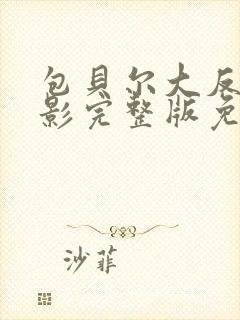 包貝尔大反
影完整版免
沙菲